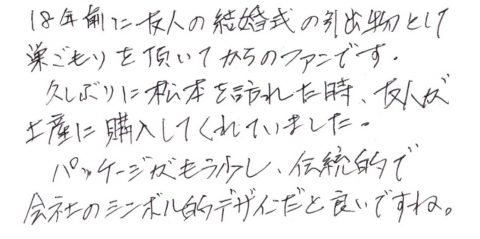 18年前に友人の結婚式の引出物として
巣ごもりを頂いてからのファンです。
久しぶりに松本を訪れた時、友人が
土産に購入してくれていました。
パッケージがもう少し、伝統的で
会社のシンボル的デザインだと良いですね。